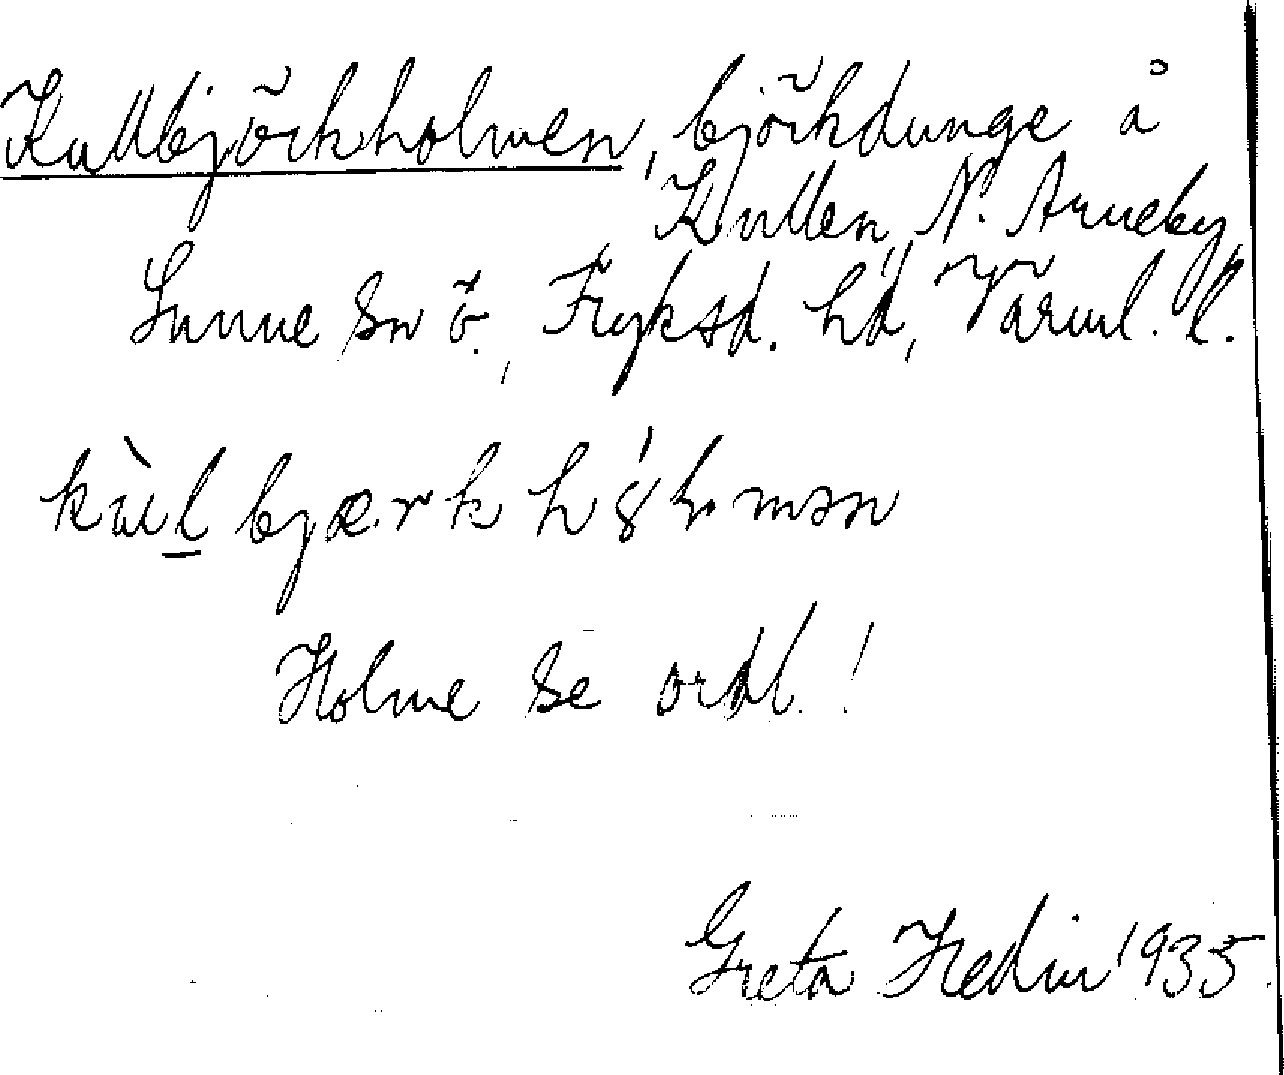 Kullbjörkholmen, björkdunge å
Kullen, N. Arneby,
Sunne sn ö., Fryksd. hd, Värml. l.
kùl bjærk
Holme se ordl.!
Greta Hedin 1935.